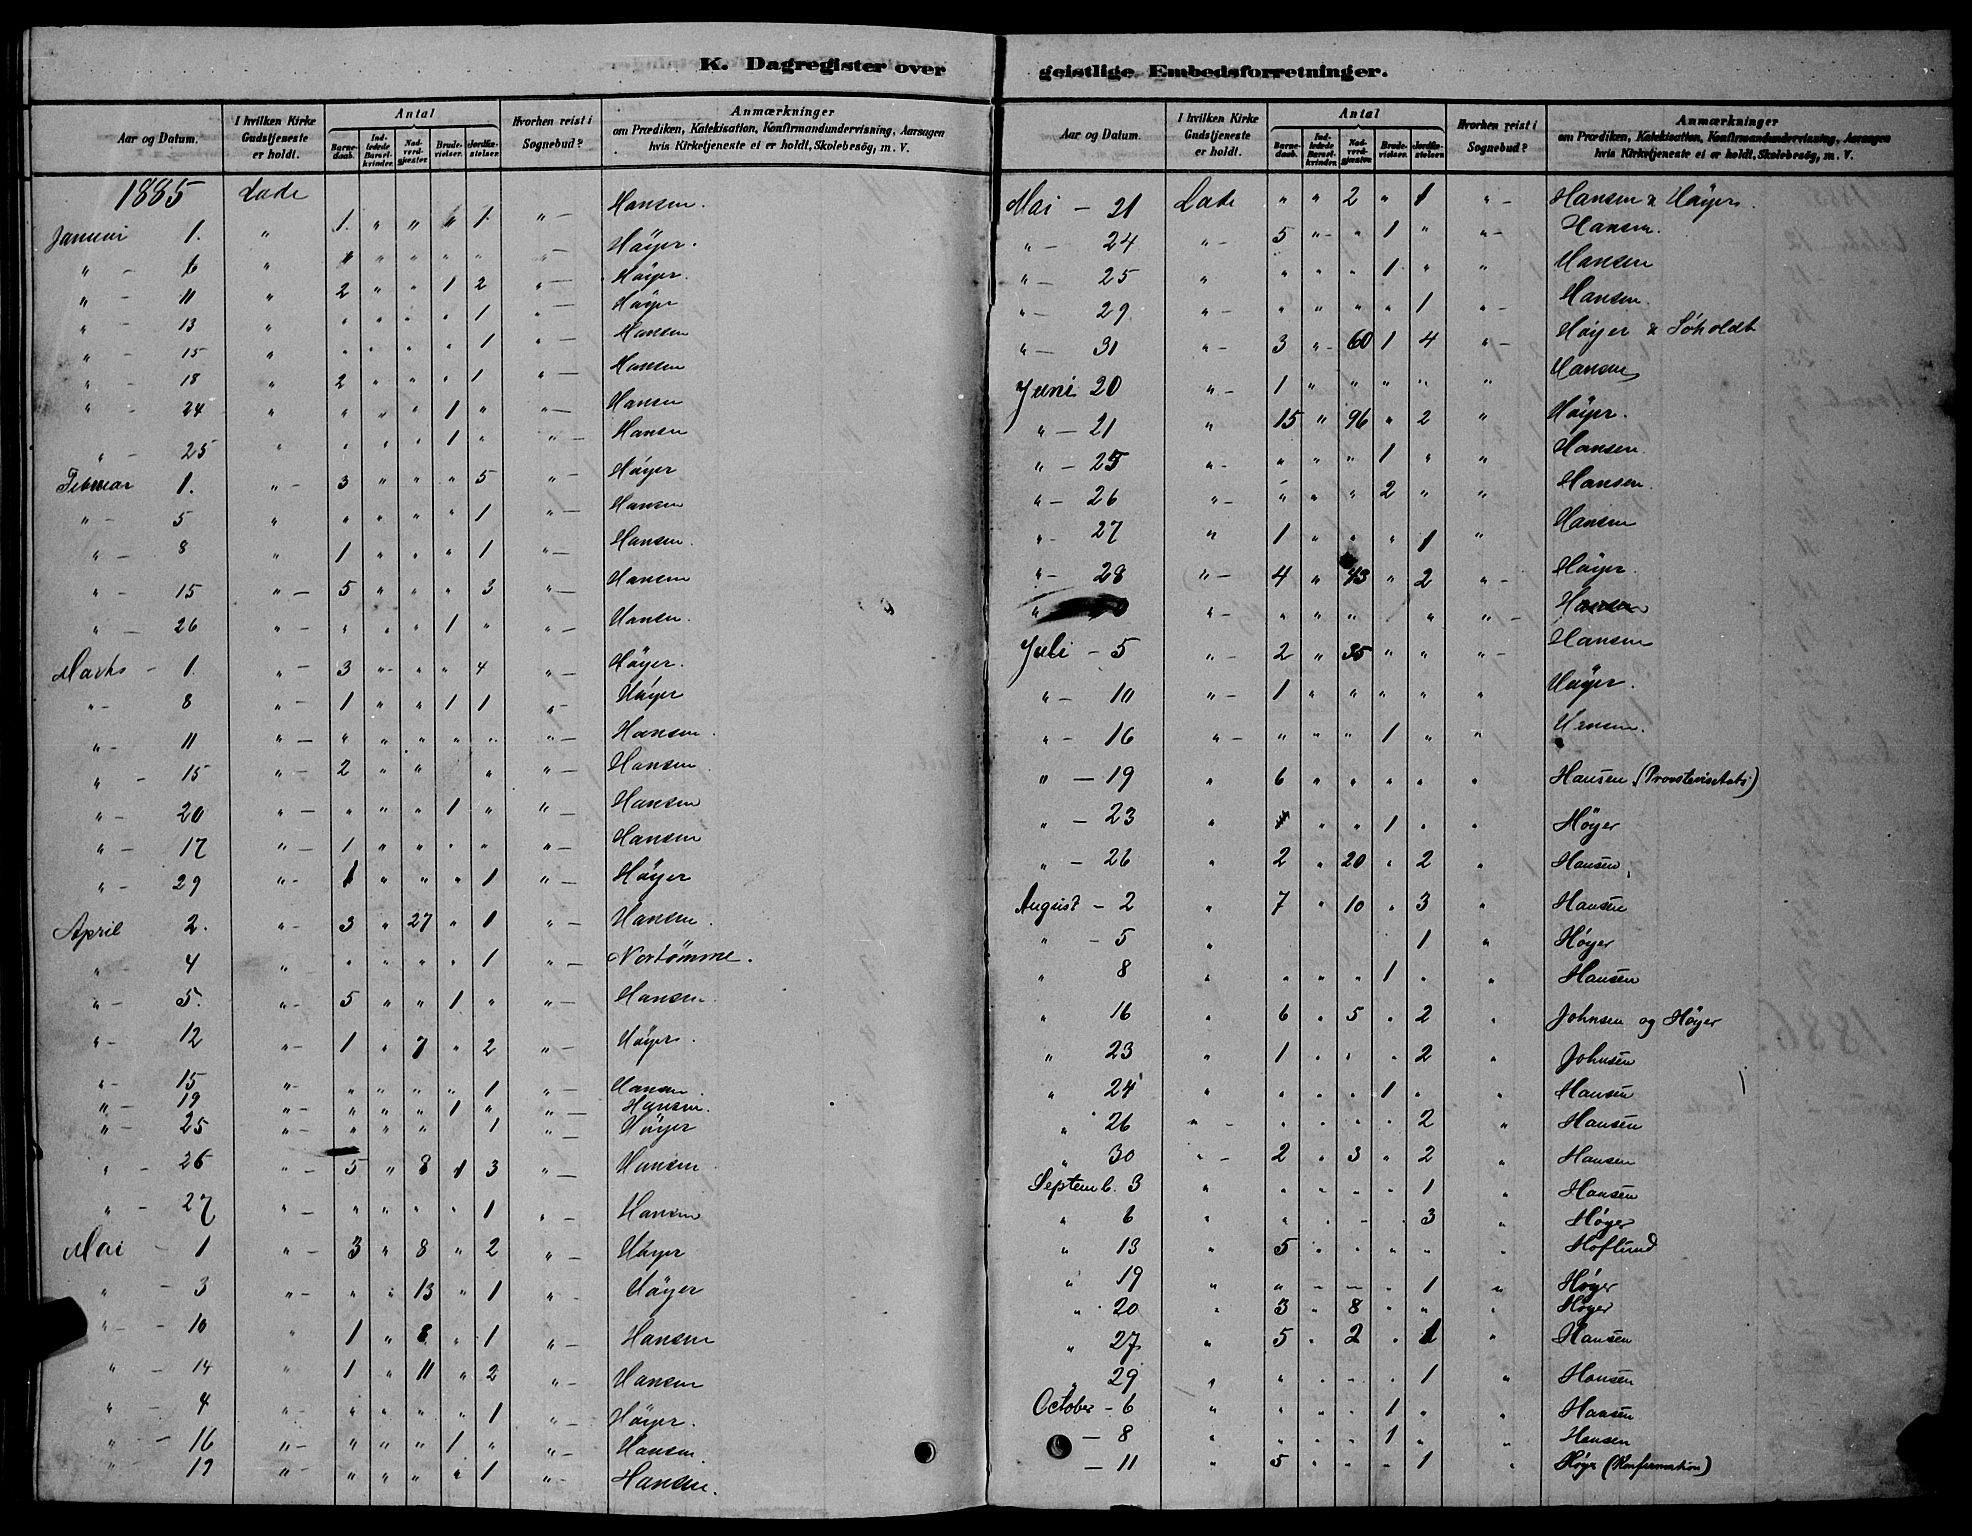 K. Dagregister over
Aar og Datum. I hvilken Kirke Gudstjeneste er holdt. Antal Barne-daab. Ind-ledede Barsel-kvinder. Nad-verd-gjester. Brude-vielser. Jordfæ-stelser. Hvorhen reist i Sognebud? Anmærkninger om Prædiken, Katekisation, Konfirmandundervisning, Aarsagen hvis Kirketjeneste ei er holdt, Skolebesög, m. V.
1885 Lade
Januar 1. " 1. " " " 1. " — Hansen.
" — 6 " 1 " " " " " — Höyer.
" — 11 " 2 " " 1 2 " — Höyer.
" — 13 " " " " " 1 " — Höyer
" — 15 " " " " " 1 " — Hansen
" — 18 " 2 " " " 1 " — Hansen
" — 24 " " " " 1 " " — Hansen
" — 25 " " " " 1 " " — Hansen
Februar 1. " — 3 " " " 5 " — Höyer
" — 5 " " " " " 1 " — Hansen
" — 8 " 1 " " " 1 " — Hansen.
" — 15 " — 5 " " " 3 " — Hansen
" — 26 " — " " " 1 " " — Hansen.
Marts — 1. " — 3 " " " 4 " — Höyer.
" — 8 " — 1 " " 1 1 " — Höyer
" — 11 " — " " " " " " — Hansen.
" — 15 " — 2 " " " " — Hansen.
" — 20 " — " " " 1 " " — Hansen
" — 17 " — 1 " " " " " — Hansen
" — 29 " — 1 " " " 1 " — Höyer
April 2. " — 3 " 27 " 1 " — Hansen.
" — 4 " — " " " " 1 " — Nortömme.
" — 5. " — 5 " " 1 " " — Hansen.
" — 12 " — 1 " 7 " 2 " — Höyer.
" — 15 " — " " " " 1 " — Hansen.
" — 19 " — " " " 1 " " — Hansen.
" — 25 " — " " " 1 " — Höyer
" — 26 " — 5 " 8 1 3 " — Hansen
" — 27 " — " " " " 1 " — Hansen
Mai — 1 " — 3 " 8 " 2 " — Höyer
" — 3 " — " " 13 " 1 " — Höyer
" — 10 " 1 " 8 " 1 " — Hansen
" — 14 " 1 " 11 " 2 " — Hansen
" — 4 " — " " " " 1 " — Höyer.
" — 16 " — " " " 1 " " — Hansen.
" — 19 " — " " " " 1 " — Hansen.
geistlige Embedsforretninger.
Aar og Datum. I hvilken Kirke Gudstjeneste er holdt. Antal Barne-daab. Ind-ledede Barsel-kvinder. Nad-verd-gjester. Brude-vielser. Jordfæ-stelser. Hvorhen reist i Sognebud? Anmærkninger om Prædiken, Katekisation, Konfirmandundervisning, Aarsagen hvis Kirketjeneste ei er holdt, Skolebesög, m. V.
Mai — 21 Lade " " 2 " 1 " — Hansen & Höyer.
" — 24 " — 5 " — " 1 " " — Hansen.
" — 25 " " " " 1 " " Hansen
" — 29 " — " " " " 1 " — Hansen.
" — 31 " — 3 " — 60 1 4 " — Höyer & Söholdt
Juni 20 " — 1 " " " " " Hansen
" — 21 " 15 " 96 " 2 " Höyer.
" — 25 " — " " " 1 " " Hansen.
" — 26 " — " " " 2 " " Hansen.
" — 27 " 1 " " " 1 " Hansen
" — 28 " — 4 " 43 " 2 " — Höyer.
" " — " " " " " — Hansen
Juli — 5 " — 2 " 35 " " " — Hansen
" — 10 " — 1 " " " " " Höyer.
" — 16 " — " " " 1 " "
" — 19 " 6 " " " " " Hansen (Provstevisitats)
" — 23 " " " 1 " " Höyer
" — 26 " 2 " 20 " 2 " Hansen
August — 2 " 7 " 10 " 3 " Hansen
" — 5 " 1 " Höyer
" 8 " " " " 1 " " Hansen
" 16 " 6 " 5 " 2 " Johnsen og Höyer
" 23 " 1 " " " 2 " Johnsen
" 24 " " " " 1 " " Hansen
" 26 " — " " " " 2 " Hansen
" 30 " — 2 " 3 " 2 " Hansen
Septemb. 3 " " " " " 1 " Hansen
" 6 " " " " " 3 " Höyer
" 13 " 5 " " " " " Hoflund
" 19 " " — — " 1 " Höyer
" 20 " 3 " 8 " " " Höyer
" 27 " 5 " 2 " 1 " Hansen
" 29 " " " " " 1 " Hansen
October — 6 " " " " 1 " " Hansen
— 8 " " " " 1 " " Hansen
— 11 " 5 " " " 1 " Höyer (Konfirmation)
1886.